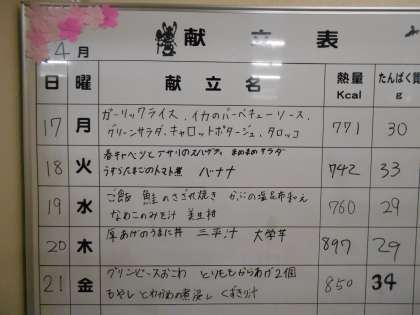 献立表
4月
日 曜 献立名 熱量 Kcal たんぱく質 g
17 月 ガーリックライス、イカのバーベキューソース、 771 30
グリーンサラダ、キャロットポタージュ、タロッコ
18 火 春キャベツとアサリのスパゲティ まめまめサラダ 742 33
うずらたまごのトマト煮 バナナ
19 水 ご飯 鮭のさざれ焼き かぶの塩昆布和え 760 29
なめこのみそ汁 美生柑
20 木 厚あげのうま煮丼 三平汁 大学芋 897 29
21 金 グリンピースおこわ とりももからあげ2個 850 34
もやしとわかめの煮浸し くずきり汁